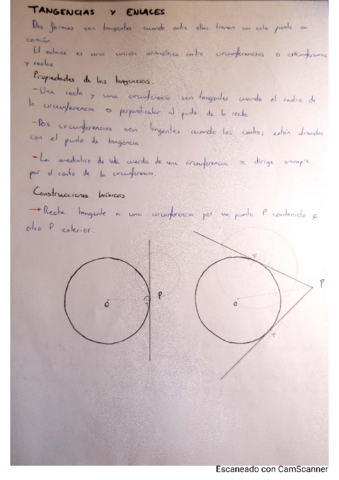 TANGENCIAS Y ENLACES
Dos formas son tangentes cuando entre ellas tienen un solo punto en
común.
El enlace es una unión armónica entre circunferencias o circunferencias
y rectas
Propiedades de las tangencias.
-Una recta y una circunferencia son tangentes cuando el radio de
la circunferencia es perpendicular al punto de la recta
-Dos circunferencias son tangentes cuando los centros están alineados
con el punto de tangencia
-La mediatriz de toda cuerda de una circunferencia se dirige siempre
por el centro de la circunferencia.
Construcciones básicas
→ Recta tangente a una circunferencia por un punto P contenido y
otro P exterior.
O P
O T T P
Escaneado con CamScanner